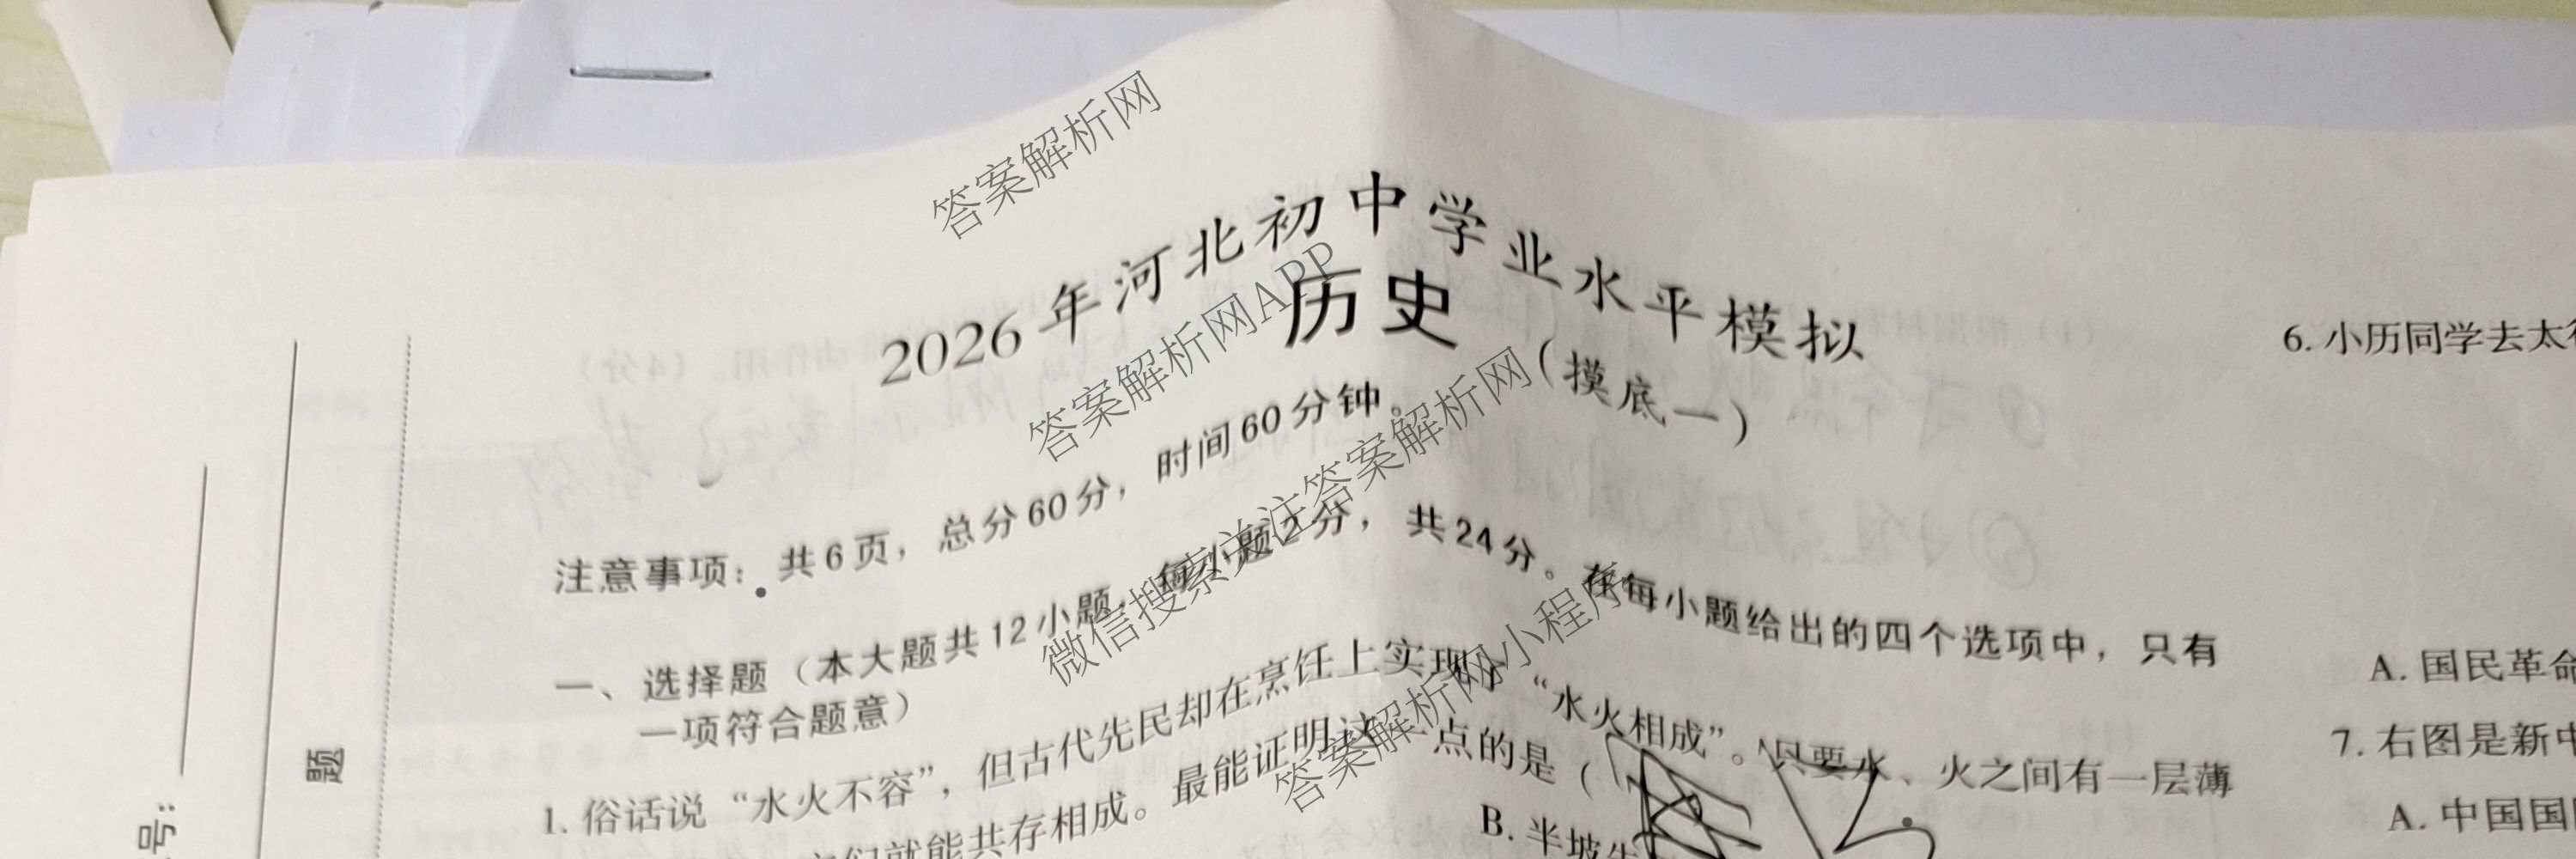 2026年河北初中学业水平模拟
历史
（摸底一）
注意事项：共6页，总分60分，时间60分钟。
一、选择题（本大题共12小题，每小题2分，共24分。在每小题给出的四个选项中，只有
一项符合题意）
1. 俗话说“水火不容”，但古代先民却在烹饪上实现了“水火相成”。只要水、火之间有一层薄
们就能共存相成。最能证明这一点的是（
B. 半坡
6. 小历同学去太
A. 国民革命
7. 右图是新中
A. 中国国
题
号：
答案解析网
答案解析网APP
微信搜索关注答案解析网
答案解析网小程序